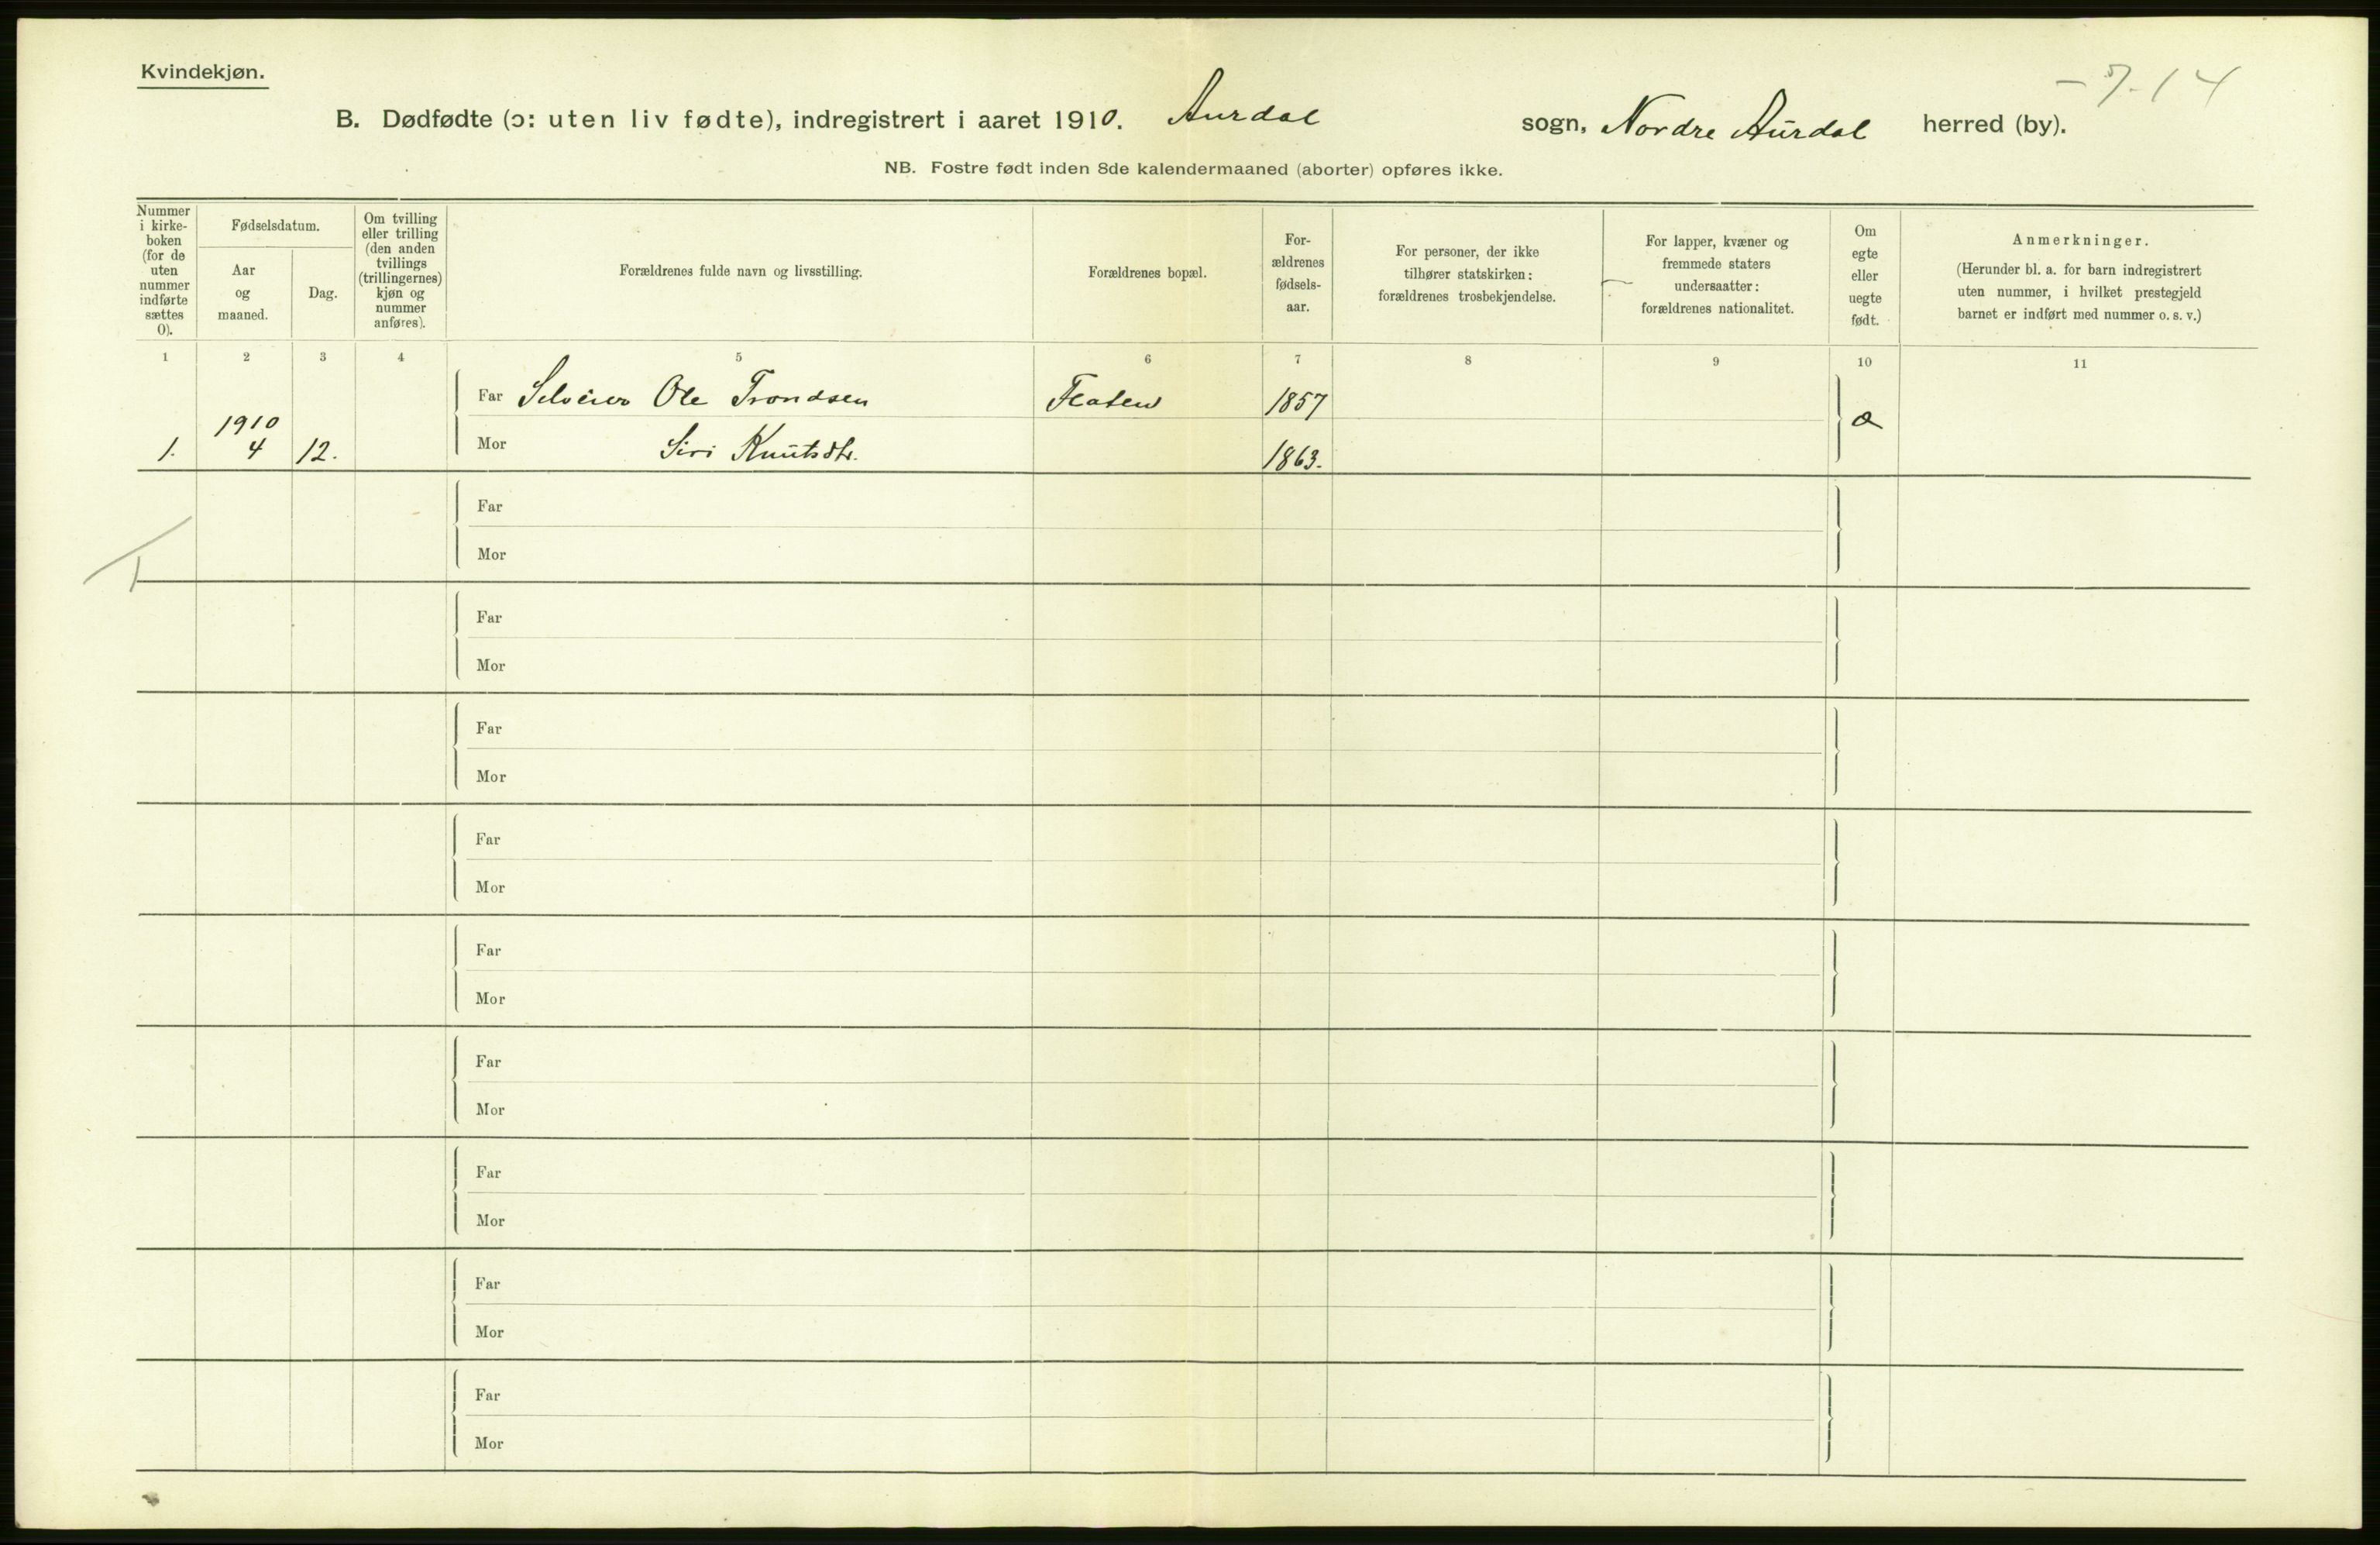 Kvindekjøn.
- 7-14
B. Dødfødte (ɔ: uten liv fødte), indregistrert i aaret 1910. Aurdal sogn, Nordre Aurdal herred (by).
NB. Fostre født inden 8de kalendermaaned (aborter) opføres ikke.
Nummer
i kirke-
boken
(for de
uten
nummer
indførte
sættes
0).
Fødselsdatum.
Aar
og
maaned.
Dag.
Om tvilling
eller trilling
(den anden
tvillings
(trillingernes)
kjøn og
nummer
anføres).
Forældrenes fulde navn og livsstilling.
Forældrenes bopæl.
For-
ældrenes
fødsels-
aar.
For personer, der ikke
tilhører statskirken:
forældrenes trosbekjendelse.
For lapper, kvæner og
fremmede staters
undersaatter:
forældrenes nationalitet.
Om
egte
eller
uegte
født.
Anmerkninger.
(Herunder bl. a. for barn indregistrert
uten nummer, i hvilket prestegjeld
barnet er indført med nummer o. s. v.)
1 2 3 4 5 6 7 8 9 10 11
Far Selveier Ole Trondsen Flaten 1857
1. 1910 4 12. Mor Siri Knutsdtr. 1863. æ
Far
Mor
Far
Mor
Far
Mor
Far
Mor
Far
Mor
Far
Mor
Far
Mor
Far
Mor
Far
Mor